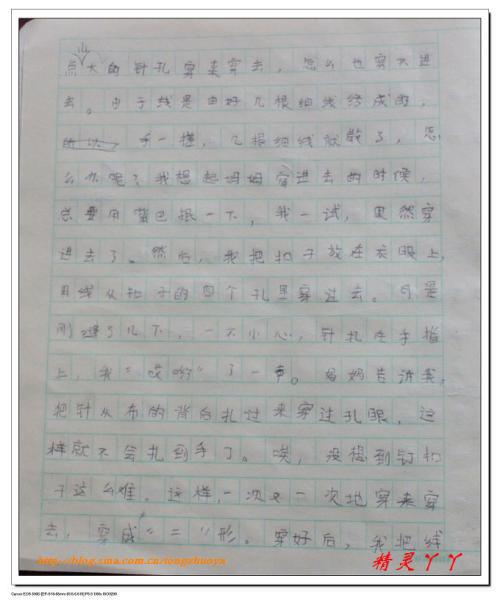 点大的针孔穿来穿去，怎么也穿不进
去。由于线是由好几根细线绕成的，
手一搓，几根细线就散了，怎
么办呢？我想起妈妈穿进去的时候，
总要用嘴巴抿一下，我一试，果然穿
进去了。然后，我把扣子放在衣服上，
用线从扣子的四个孔里穿过去。可是
刚缝了几下，一不小心，针扎在手指
上，我“哎哟”了一声。妈妈告诉我，
把针从布的背后扎过来穿过孔眼，这
样就不会扎到手了。唉，没想到钉扣
子这么难。这样，一次又一次地穿来穿
去，穿成“二”形。穿好后，我把线
http://blog.sina.com.cn/tongzhuoya
精灵丫丫